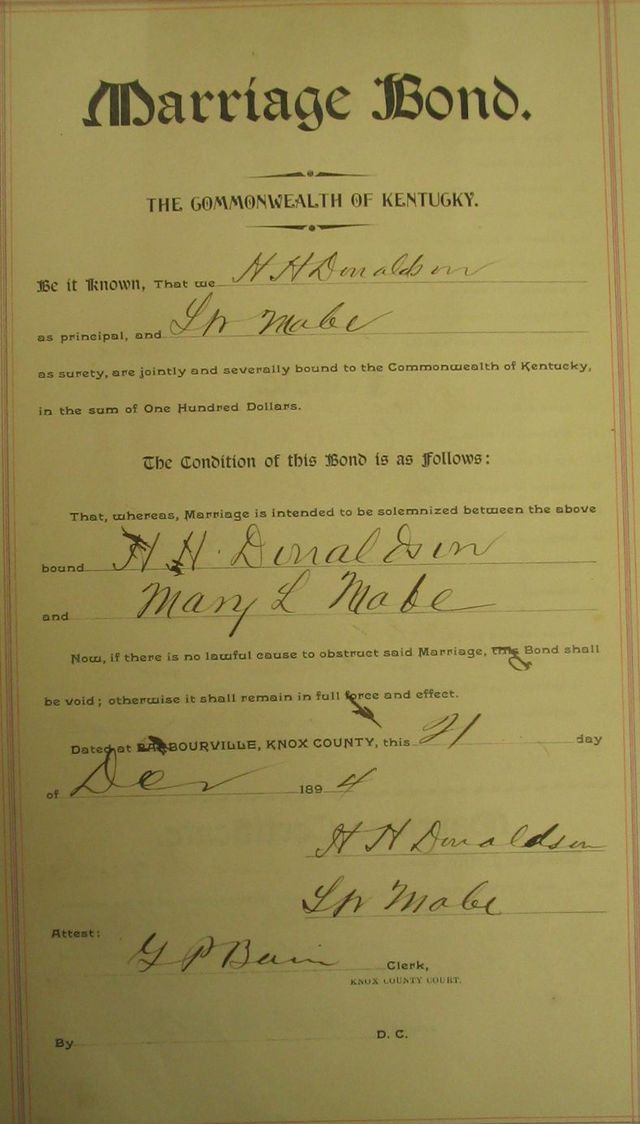 Marriage Bond.
THE COMMONWEALTH OF KENTUCKY.
Be it Known, That we H H Donaldson
as principal, and L W Mabe
as surety, are jointly and severally bound to the Commonwealth of Kentucky,
in the sum of One Hundred Dollars.
The Condition of this Bond is as Follows:
That, whereas, Marriage is intended to be solemnized between the above
bound H. H. Donaldson
and Mary L Mabe
Now, if there is no lawful cause to obstruct said Marriage, this Bond shall
be void; otherwise it shall remain in full force and effect.
Dated at BARBOURVILLE, KNOX COUNTY, this 21 day
of Dec 1894
H H Donaldson
L W Mabe
Attest:
G P Bain Clerk,
KNOX COUNTY COURT.
By D. C.